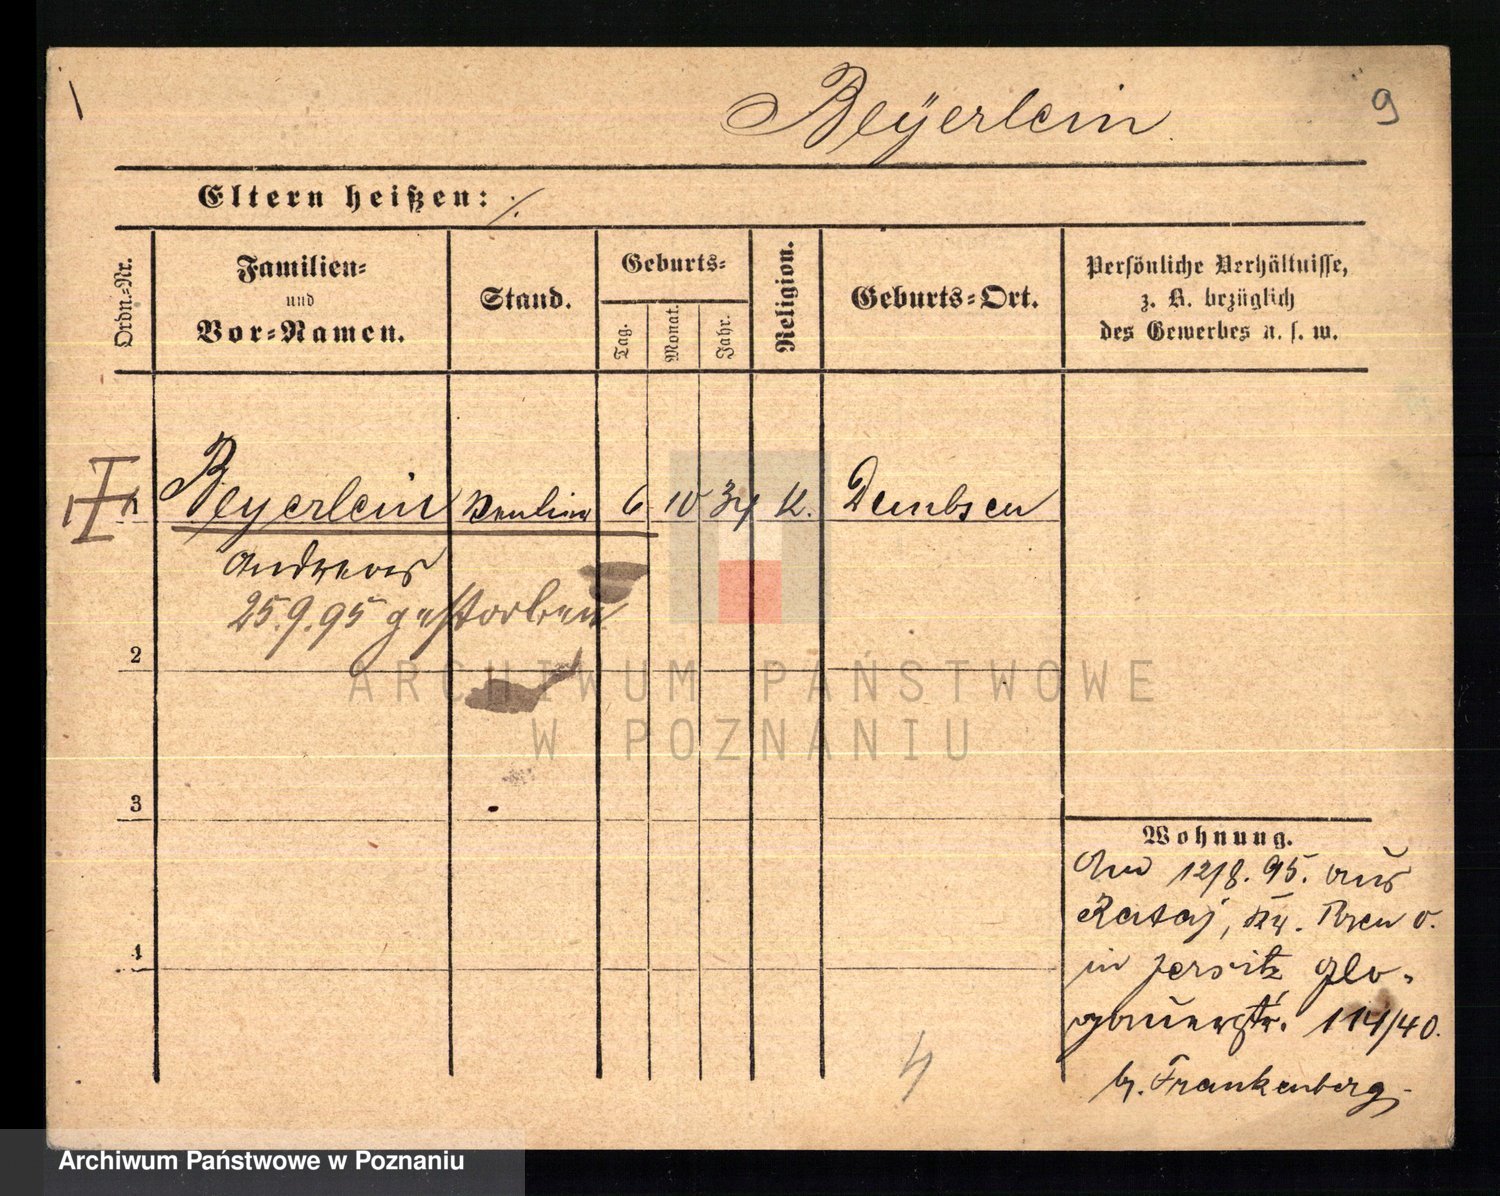 Beÿerlein
9
Eltern heißen: ·/.
Ordn.-Nr.
Familien-
und
Vor-Namen.
Stand.
Geburts-
Tag.
Monat.
Jahr.
Religion.
Geburts-Ort.
Persönliche Verhältnisse,
z. B. bezüglich
des Gewerbes u. s. w.
1 Beyerlein 6 10 34 K. Dembsen
Andreas
25.9.95 gestorben
2
3
4
Wohnung.
Am 12/8. 95. aus
Rataj, Kr. Posen O.
in Jersitz Glo-
gauerstr. 114/40.
b. Frankenberg
4
ARCHIWUM PAŃSTWOWE
W POZNANIU
Archiwum Państwowe w Poznaniu